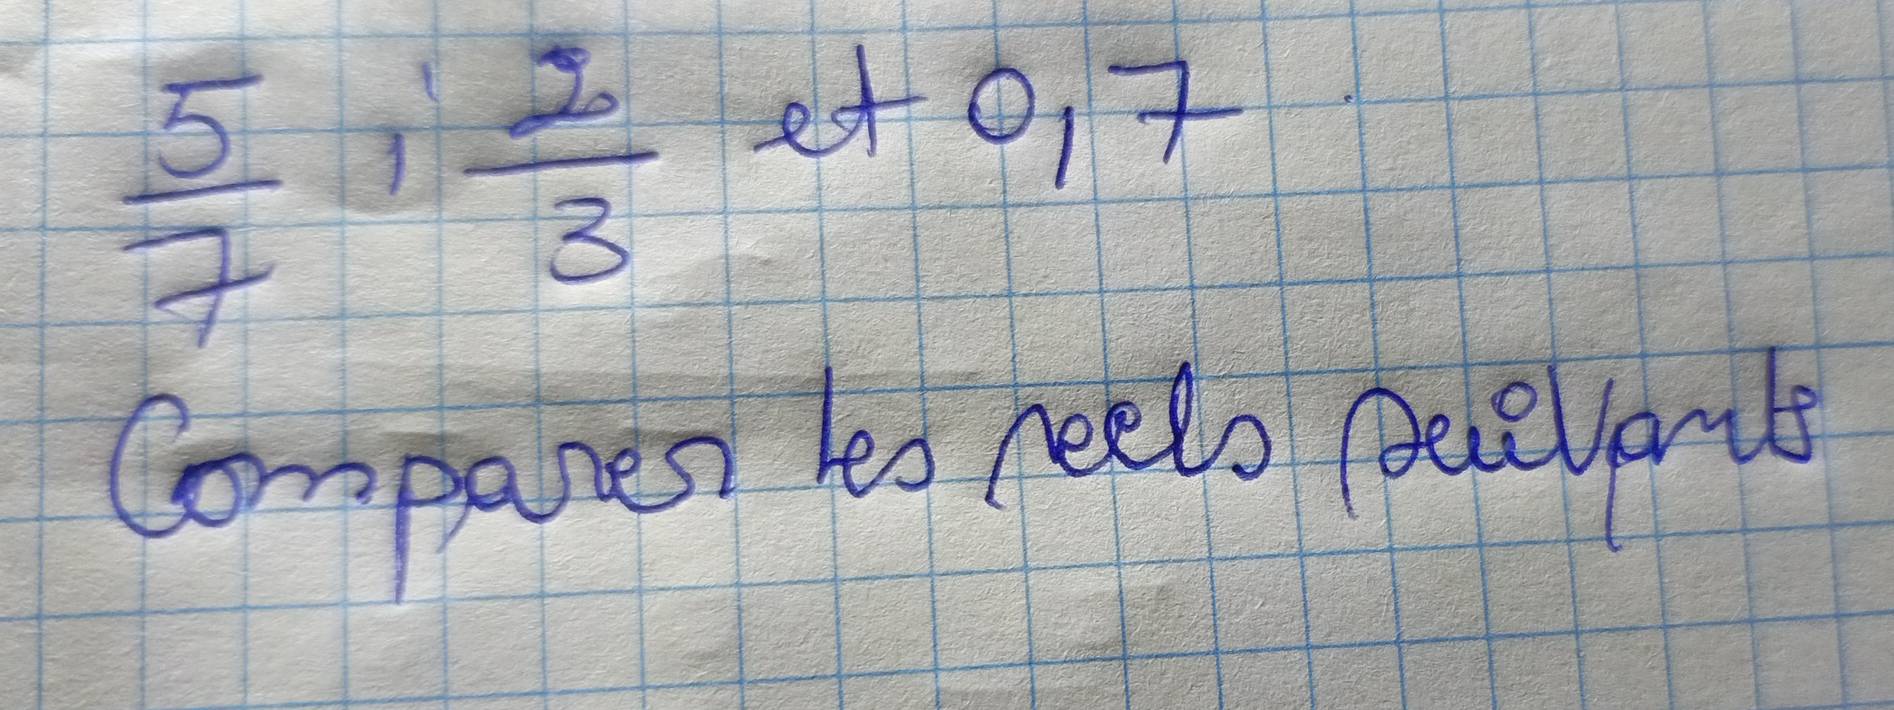 5/7 ; 2/3 et 0,7
Comparer les reels suivants